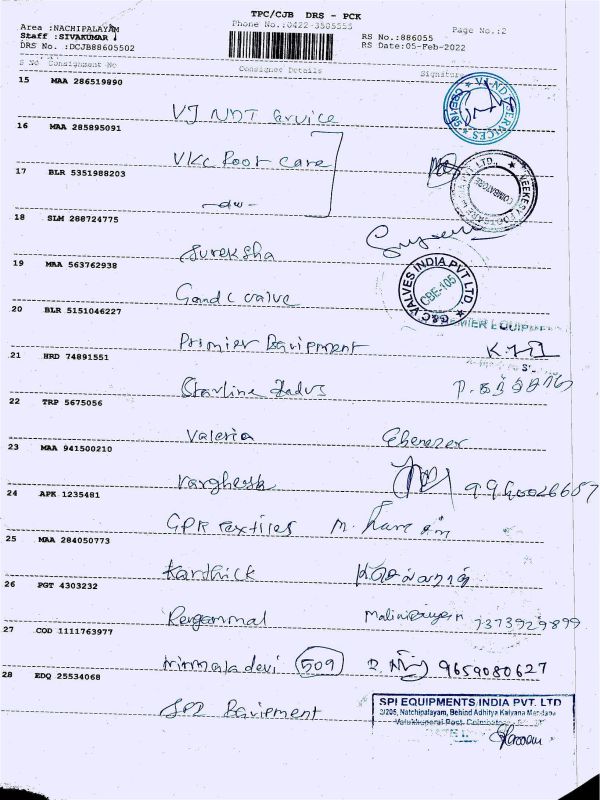 TPC/CJB DRS - PCK
Area :NACHIPALAYAM Phone No.:0422-3505555 Page No.:2
Staff :SIVAKUMAR RS No.:886055
DRS No. :DCJB88605502 RS Date:05-Feb-2022
S No Consignment No Consignee Details Signature
15 MAA 286519890
VJ NDT Service
VJ NDT SERVICES
16 MAA 285895091
VKC Foot care
17 BLR 5351988203
-do-
COIMBATORE
18 SLM 288724775
Sureksha
19 MAA 563762938
G and C valve
G&C VALVES INDIA PVT LTD
CBE-105
20 BLR 5151046227
Primier Equipment
PREMIER EQUIPMEN
21 HRD 74891551
Starline
22 TRP 5675056
Valeria Ebenezer
23 MAA 941500210
Varghese
24 APK 1235481
GPR Textiles
25 MAA 284050773
Karthick
26 PGT 4303232
Rengammal 7373929899
27 COD 1111763977
Nirmala devi 509 9659080627
28 EDQ 25534068
SPI Equipment
SPI EQUIPMENTS INDIA PVT. LTD
2/205, Natchipalayam, Behind Adhitya Kalyana Mandapa